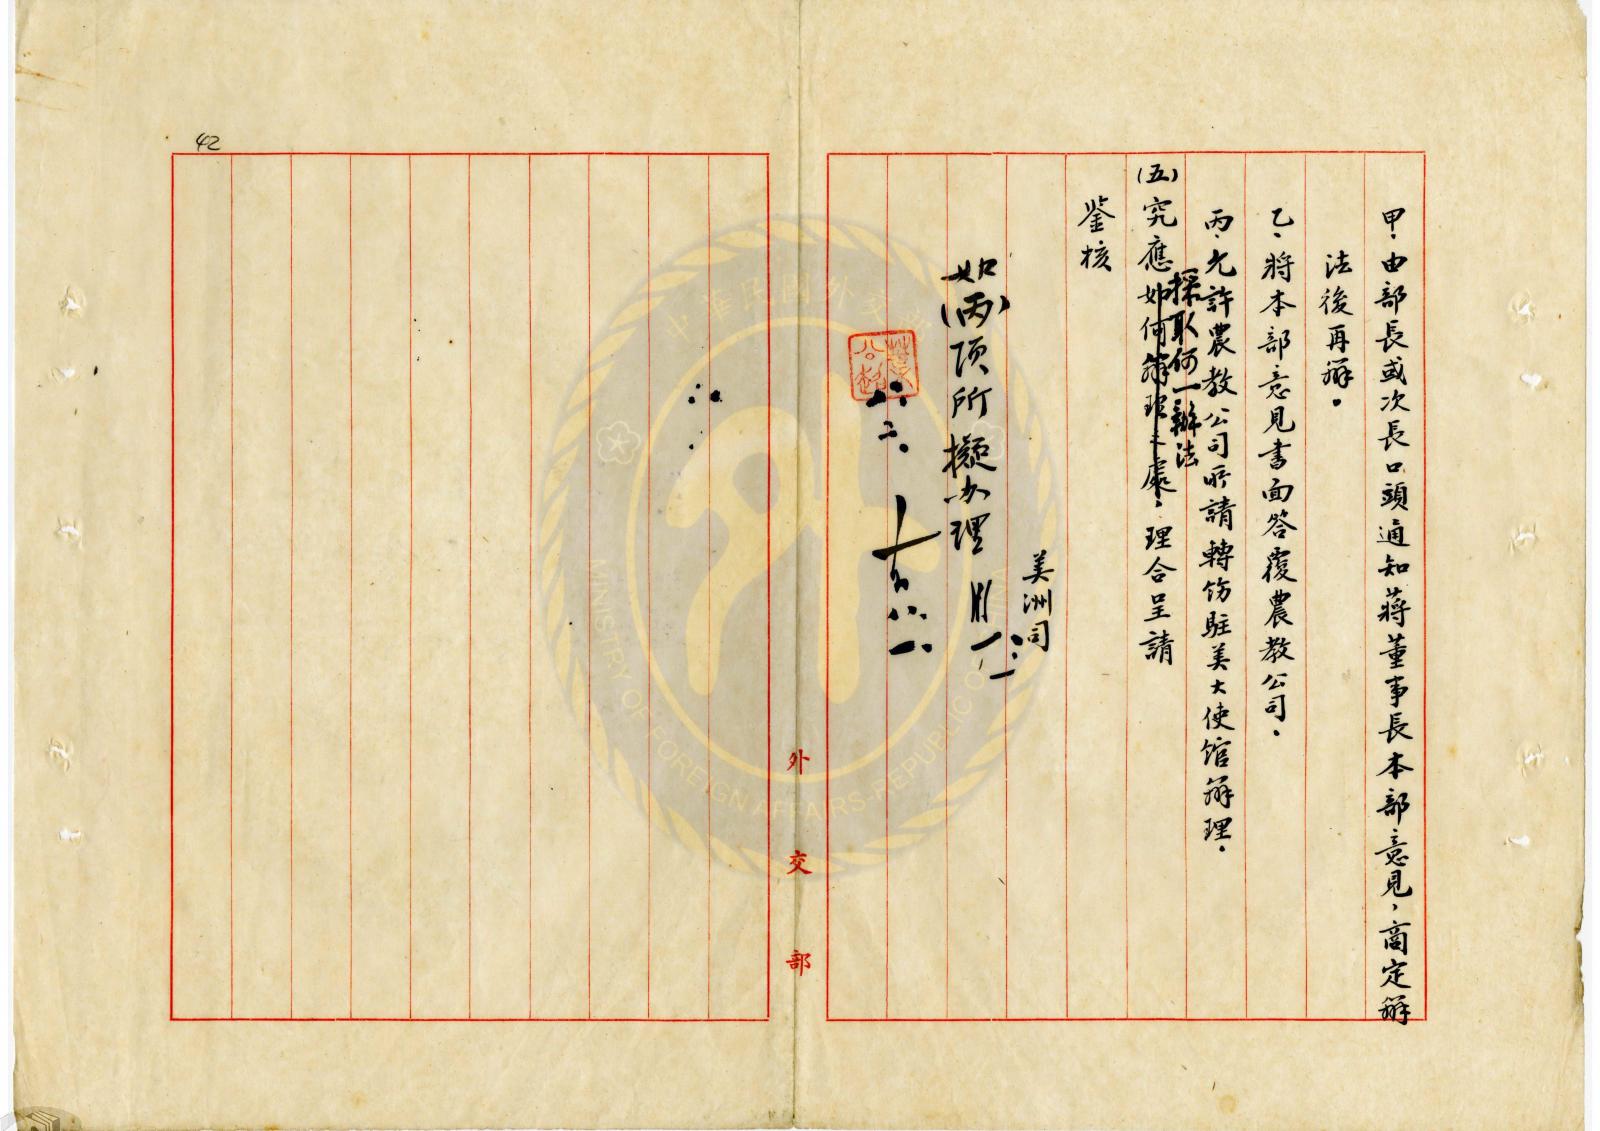 甲、由部長或次長口頭通知蔣董事長本部意見，商定辦
法後再辦。
乙、將本部意見書面答覆農教公司。
丙、允許農教公司所請轉飭駐美大使館辦理。
採取何一辦法
(五)究應如何辦理之處，理合呈請
鑒核
美洲司
八、一
如(丙)項所擬办理
八、二、
八、一、
外交部
42
中華民國外交部
MINISTRY OF FOREIGN AFFAIRS-REPUBLIC O